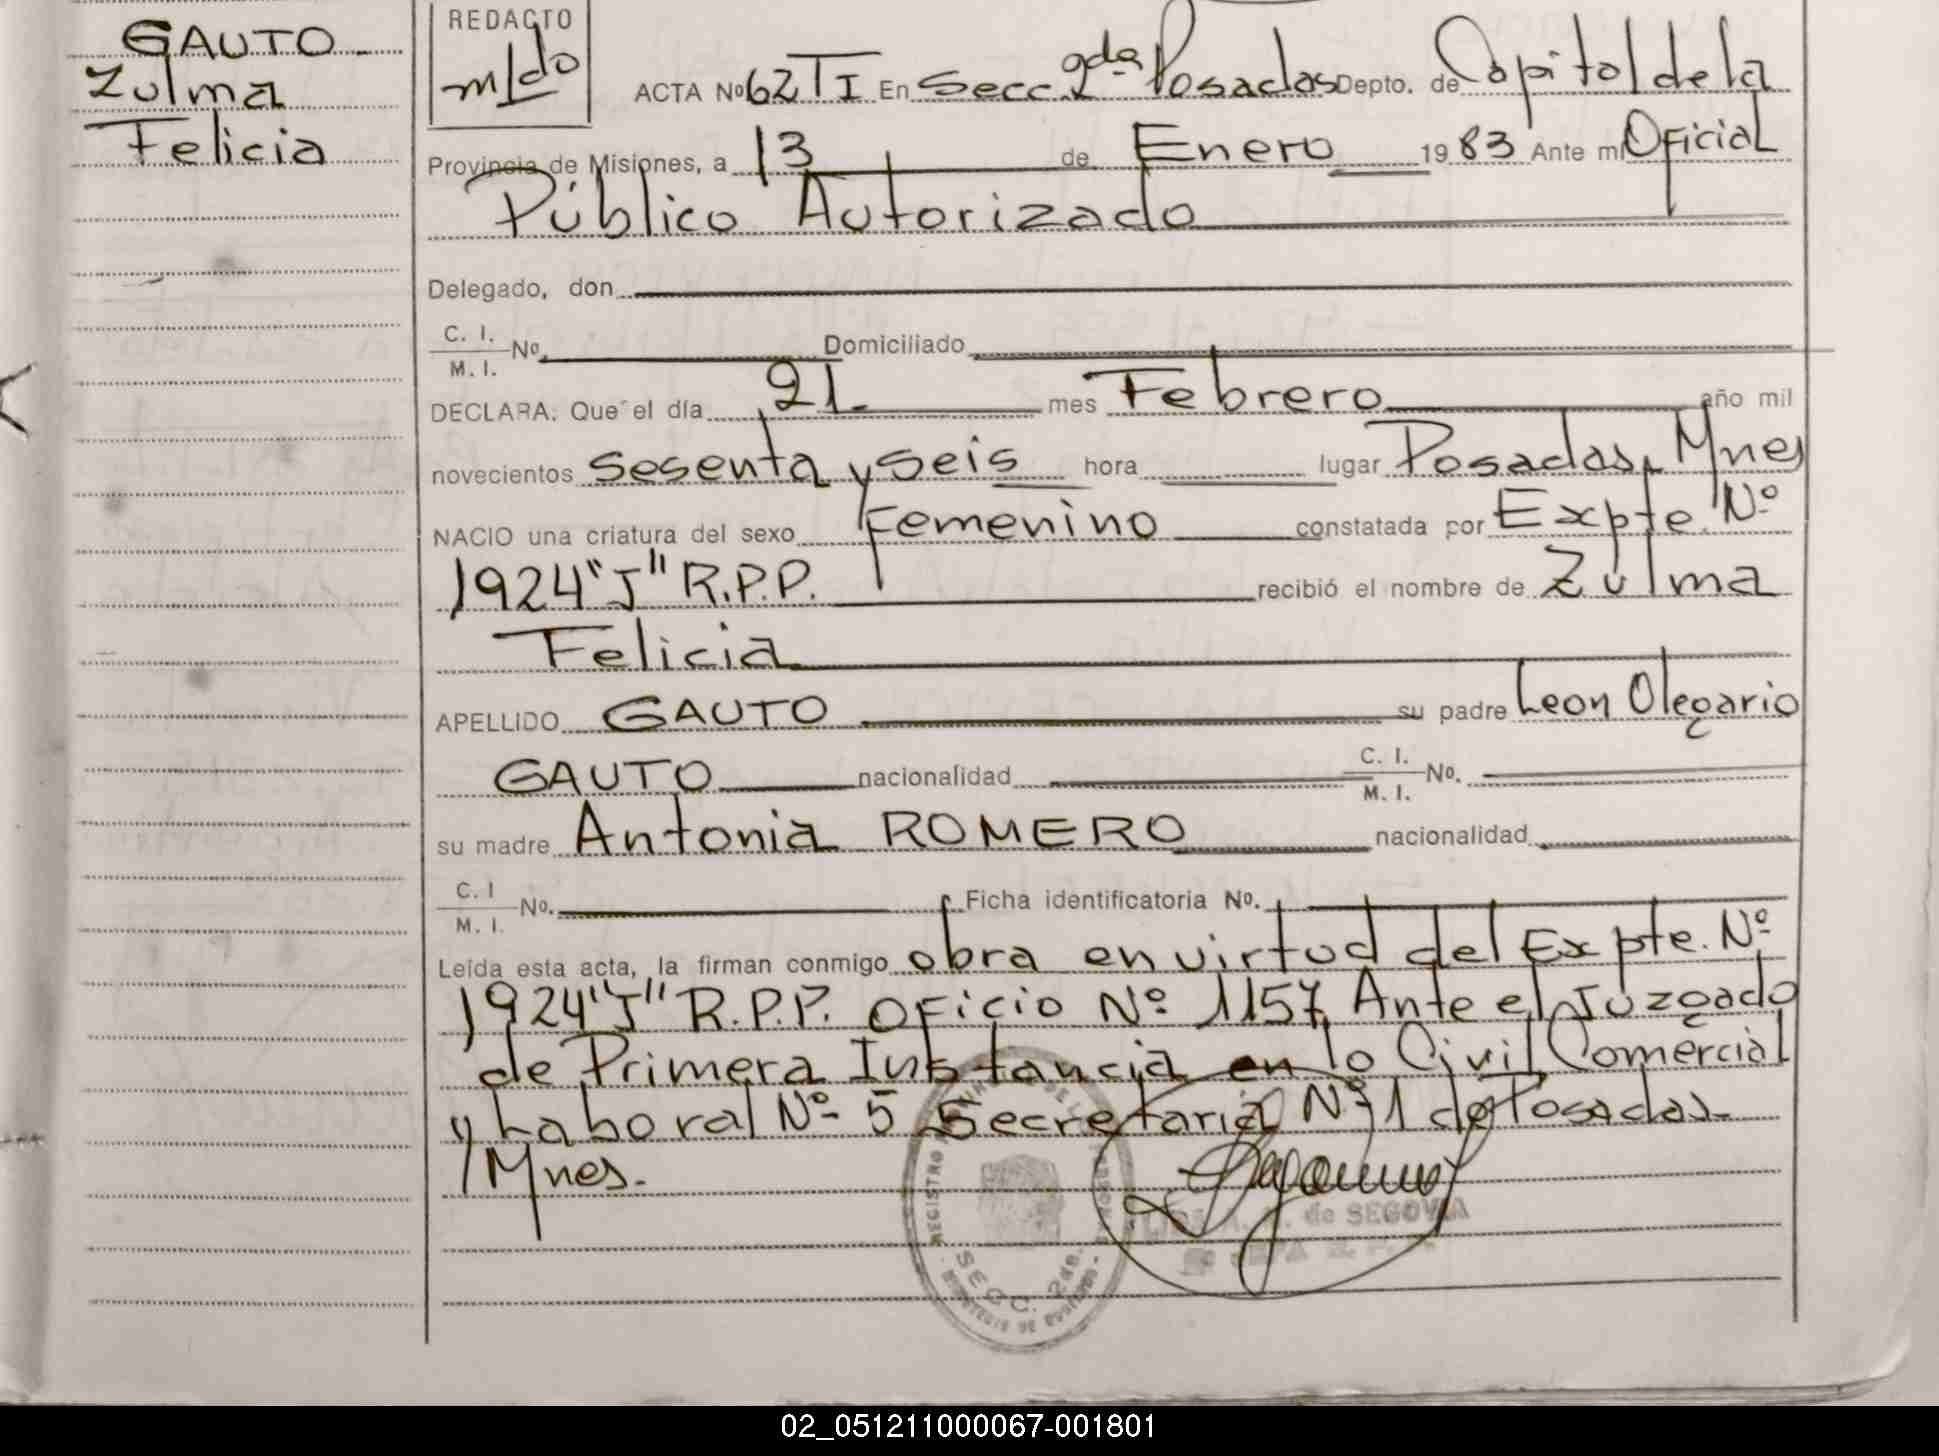 GAUTO
Zulma
Felicia
REDACTO
mldo
ACTA Nº 62 TI En Secc. 2da Posadas Depto. de Capital de la
Provincia de Misiones, a 13 de Enero 1983 Ante mi Oficial
Público Autorizado
Delegado, don
C. I. / M. I. Nº. Domiciliado
DECLARA: Que el día 21 mes Febrero año mil
novecientos sesenta y seis hora lugar Posadas, Mnes
NACIO una criatura del sexo Femenino constatada por Expte. Nº
1924 "J" R.P.P. recibió el nombre de Zulma
Felicia
APELLIDO GAUTO su padre Leon Olegario
GAUTO nacionalidad C. I. / M. I. Nº.
su madre Antonia ROMERO nacionalidad
C. I / M. I. Nº. Ficha identificatoria Nº.
Leída esta acta, la firman conmigo obra en virtud del Expte. Nº
1924 "J" R.P.P. Oficio Nº 1157, Ante el Juzgado
de Primera Instancia en lo Civil Comercial
y Laboral Nº 5 Secretaria Nº 1 de Posadas
Mnes.
REGISTRO
SECC. 2da.
de SEGOVIA
02_051211000067-001801